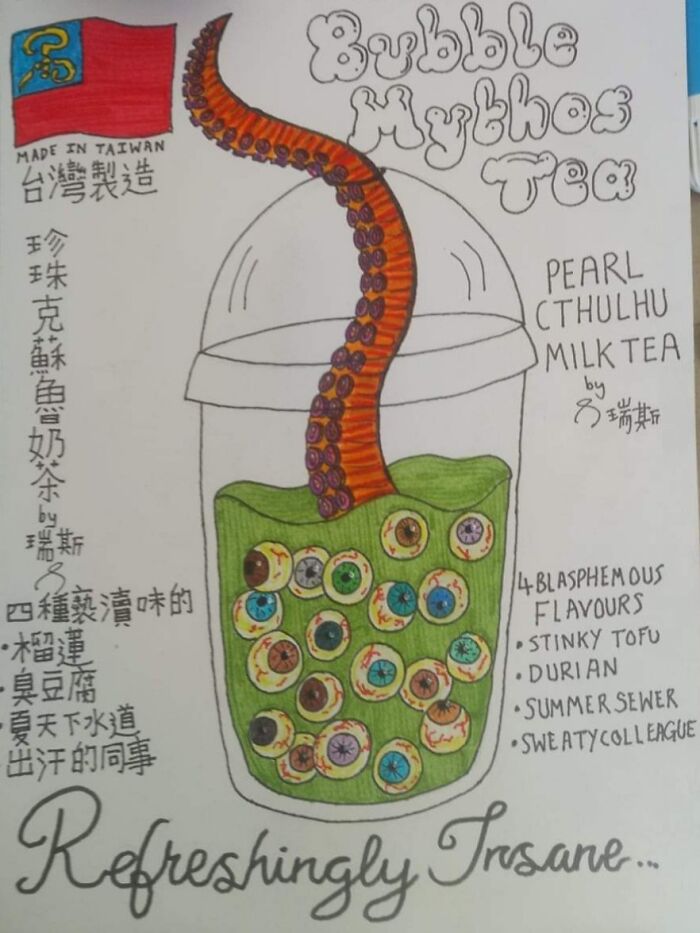 Bubble
Mythos
Tea
MADE IN TAIWAN
台灣製造
珍珠克蘇魯奶茶
by
瑞斯
PEARL
CTHULHU
MILK TEA
by
瑞斯
四種褻瀆味的
•榴蓮
•臭豆腐
•夏天下水道
出汗的同事
4 BLASPHEMOUS
FLAVOURS
•STINKY TOFU
•DURIAN
•SUMMER SEWER
•SWEATY COLLEAGUE
Refreshingly Insane...